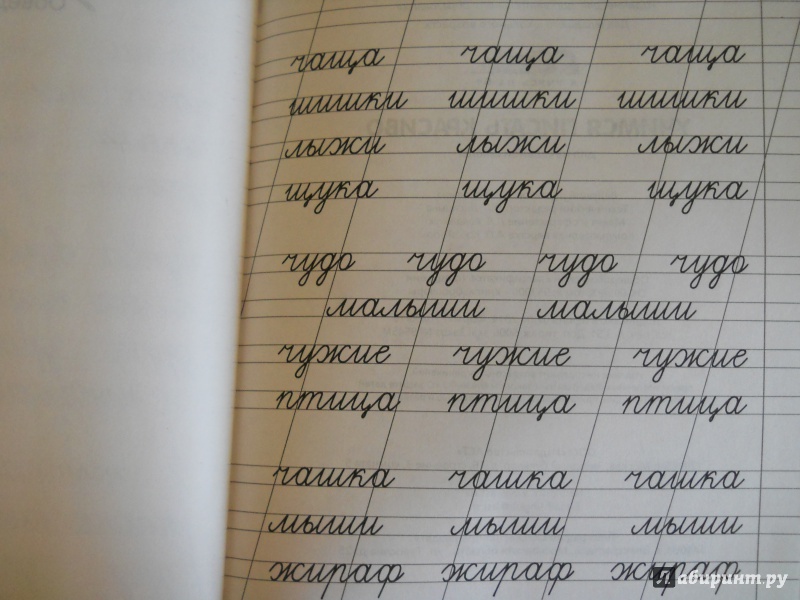 чаща чаща чаща
шишки шишки шишки
лыжи лыжи лыжи
щука щука щука
чудо чудо чудо чудо
малыши малыши
чужие чужие чужие
птица птица птица
чашка чашка чашка
мыши мыши мыши
жираф жираф жираф
Лабиринт.ру